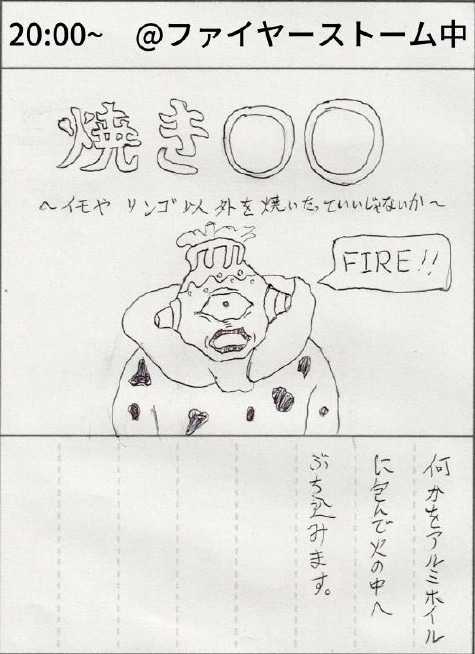 20:00~ @ファイヤーストーム中
焼き〇〇
～イモや リンゴ以外を焼いたっていいじゃないか～
FIRE!!
何かをアルミホイル
に包んで火の中へ
ぶち込みます。